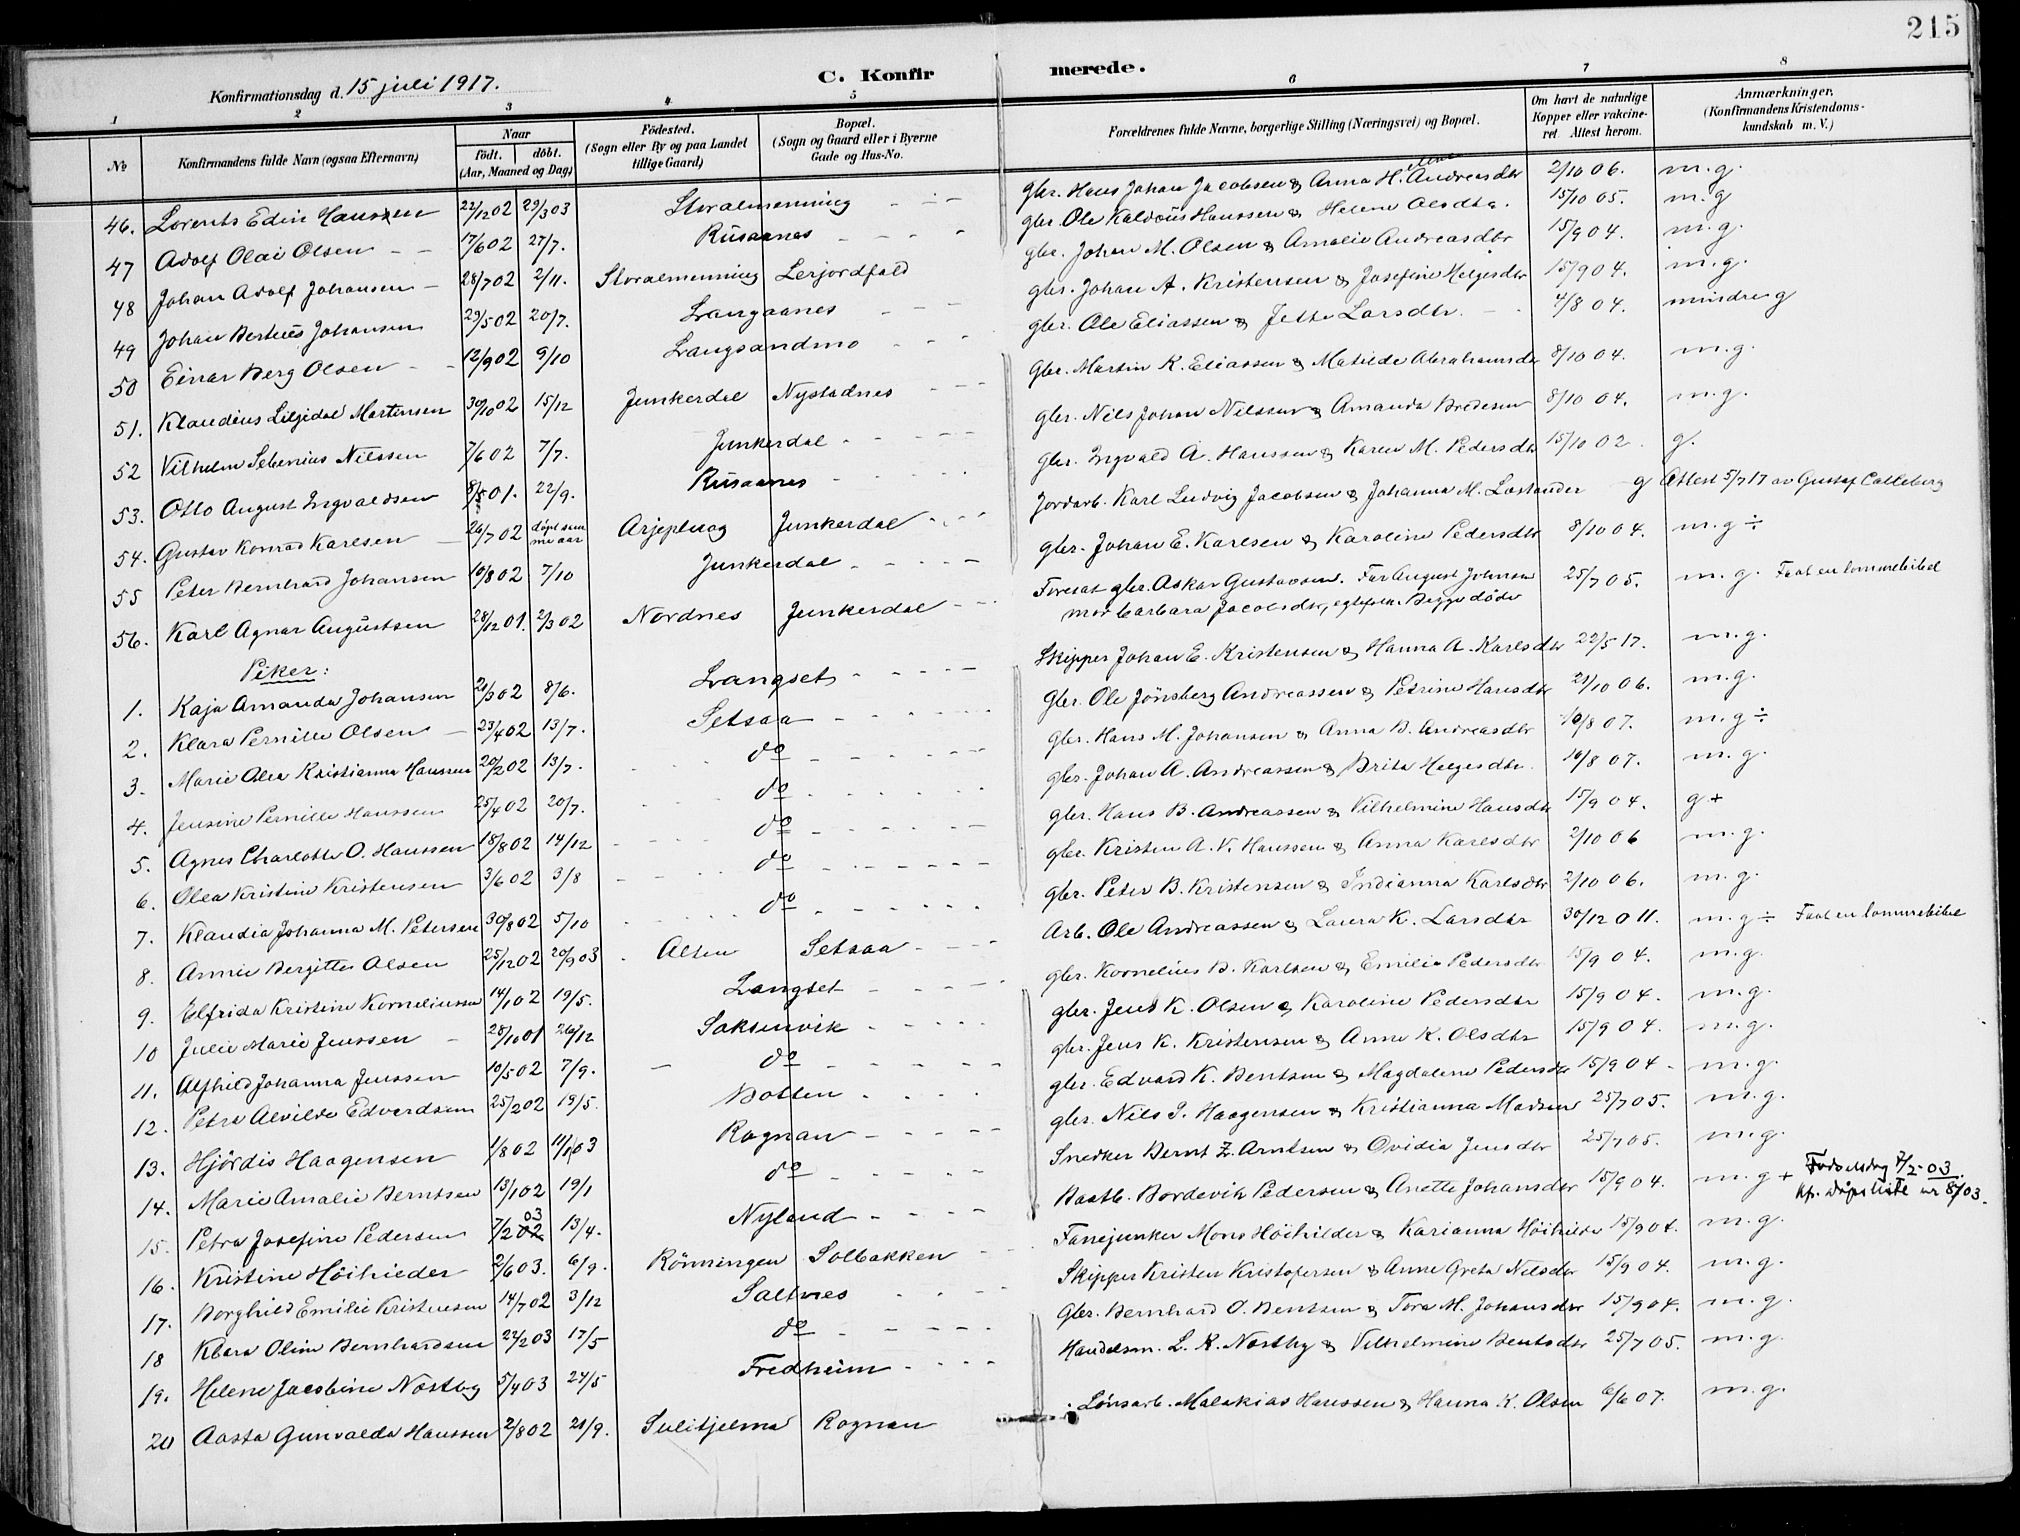 215
C. Konfirmerede.
Konfirmationsdag d. 15 juli 1917.
1 2 3 4 5 6 7 8
No Konfirmandens fulde Navn (ogsaa Efternavn) Naar født. døbt. (Aar, Maaned og Dag) Fødested. (Sogn eller By og paa Landet tillige Gaard) Bopæl. (Sogn og Gaard eller i Byerne Gade og Hus-No. Forældrenes fulde Navne, borgerlige Stilling (Næringsvei) og Bopæl. Om havt de naturlige Kopper eller vakcineret Attest herom. Anmærkninger. (Konfirmandens Kristendomskundskab m. V.)
46. Lorents Edin Hanssen 22/12 02 29/3 03 Storalmenning gbr. Hans Johan Jacobsen & Anna H. Andreasdtr 2/10 06. m.g.
47 Adolf Olai Olsen 17/6 02 27/7. Rusaanes gbr. Ole Kaldaus Hanssen & Helene Olsdtr. 15/10 05. m.g
48 Johan Adolf Johansen 28/7 02 2/11. Storalmenning Lerjordfald gbr. Johan M. Olsen & Amalie Andreasdtr 15/9 04. m.g.
49 Johan Berteus Johansen 29/5 02 20/7. Langaanes gbr. Johan A. Kristensen & Josefine Helgesdtr 15/9 04. m.g.
50 Einar Berg Olsen 12/9 02 9/10 Langsandmo gbr. Ole Eliassen & Jette Larsdtr. 4/8 04. mindre g
51. Klaudius Liljedal Martinsen 30/10 02 15/12 Junkerdal Nystadnes gbr. Martin K. Eliassen & Matilde Abrahamsdtr 8/10 04. m.g.
52 Vilhelm Selenius Nilssen 7/6 02 7/7. Junkerdal gbr. Nils Johan Nilssen & Amanda Bredesen 8/10 04. m.g.
53. Otto August Ingvaldsen 8/5 01. 22/9. Rusaanes gbr. Ingvald A. Hanssen & Karen M. Pedersdtr 15/10 02. g.
54. Gustav Konrad Karlsen 26/7 02 døpt samme aar Arjepluog Junkerdal Jordarb. Karl Ludvig Jacobsen & Johanna M. Lastander g Attest 5/7 17 av Gustaf Calleberg
55 Peter Bernhard Johansen 10/8 02 7/10 Junkerdal gbr. Johan E. Karlsen & Karoline Pedersdtr 8/10 04. m.g ÷
56. Karl Agnar Augustsen 28/12 01. 2/3 02 Nordnes Junkerdal Foresat gbr. Oskar Gustavsen. Far August Johnsen mor Barbara Jacobsdtr, egtefolk. Begge døde 25/7 05. m.g. Faat en lommebibel
Piker:
1. Kaja Amanda Johansen 21/3 02 8/6. Langset Skipper Johan E. Kristensen & Hanna A. Karlsdtr 22/5 17. m.g.
2. Klara Pernille Olsen 23/4 02 13/7. Setsaa Gbr. Ole Jønsberg Andreassen & Petrine Hansdtr 21/10 06. m.g.
3. Marie Olea Kristianna Hanssen 20/2 02 13/7. do gbr. Hans M. Johansen & Anna B. Andreasdtr 10/8 07. m.g ÷
4. Jensine Pernille Hanssen 25/4 02 20/7. do gbr. Johan A. Andreassen & Brita Helgesdtr. 10/8 07. m.g.
5. Agnes Charlotte O. Hanssen 18/8 02 14/12 do gbr. Hans B. Andreassen & Vilhelmine Hansdtr 15/9 04. g +
6. Olea Kristine Kristensen 3/6 02 3/8 do gbr. Kristen A. V. Hanssen & Anna Karlsdtr 2/10 06 m.g.
7. Klaudia Johanna M. Petersen 30/8 02 5/10 do gbr. Peter B. Kristensen & Indianna Karlsdtr 2/10 06. m.g.
8. Annie Bergitte Olsen 25/12 02 20/9 03 Alten Setsaa Arb. Ole Andreassen & Laura K. Larsdtr 30/12 011. m.g ÷ Faat en lommebibel
9. Elfrida Kristine Korneliussen 14/1 02 19/5. Langset gbr. Kornelius B. Karlsen & Emilie Pedersdtr 15/9 04. m.g.
10 Julie Marie Jenssen 28/10 01 26/12 Saksenvik gbr. Jens K. Olsen & Karoline Pedersdtr 15/9 04. m.g.
11. Alfhild Johanna Jenssen 10/5 02 7/9. do gbr. Jens K. Kristensen & Anne K. Olsdtr 15/9 04. m.g.
12. Petra Alvilde Edvardsen 25/2 02 19/5. Botten gbr. Edvard K. Bentsen & Magdalene Pedersdtr 15/9 04. m.g.
13. Hjørdis Haagensen 1/8 02 11/1 03 Rognan gbr. Nils J. Haagensen & Kristianna Madsen 25/7 05. m.g.
14. Marie Amalie Berntsen 13/1 02 19/1 do Snedker Bernt Z. Arntsen & Ovidia Jensdtr 25/7 05. m.g.
15. Petra Josefine Pedersen 7/2 02 03 13/4. Nyland Baatb. Bordevik Pedersen & Anette Johansdtr 15/9 04. m.g + Fødselsdag 7/2-03. kfr. dåpsliste nr 8/03.
16. Kristine Høihilder 2/6 03. 6/9. Rønningen Solbakken Fanejunker Mons Høihilder & Karianna Høihilder 15/9 04. m.g.
17. Borghild Emilie Kristensen 14/7 02 3/12 Saltnes Skipper Kristen Kristofersen & Anne Greta Nilsdtr 15/9 04. m.g.
18 Klara Oline Bernhardsen 22/2 03 17/5 do Gbr. Bernhard O. Bentsen & Tora M. Johansdtr 15/9 04. m.g.
19. Helene Jacobine Næstby 5/4 03 24/5 Fredheim Handelsm. L. K. Næstby & Vilhelmine Bentsdtr 25/7 05. m.g.
20 Aasta Gunvalda Hanssen 2/8 02 21/9. Sulitjelma Rognan Lønsarb. Malakias Hanssen & Hanna K. Olsen 6/6 07. m.g.